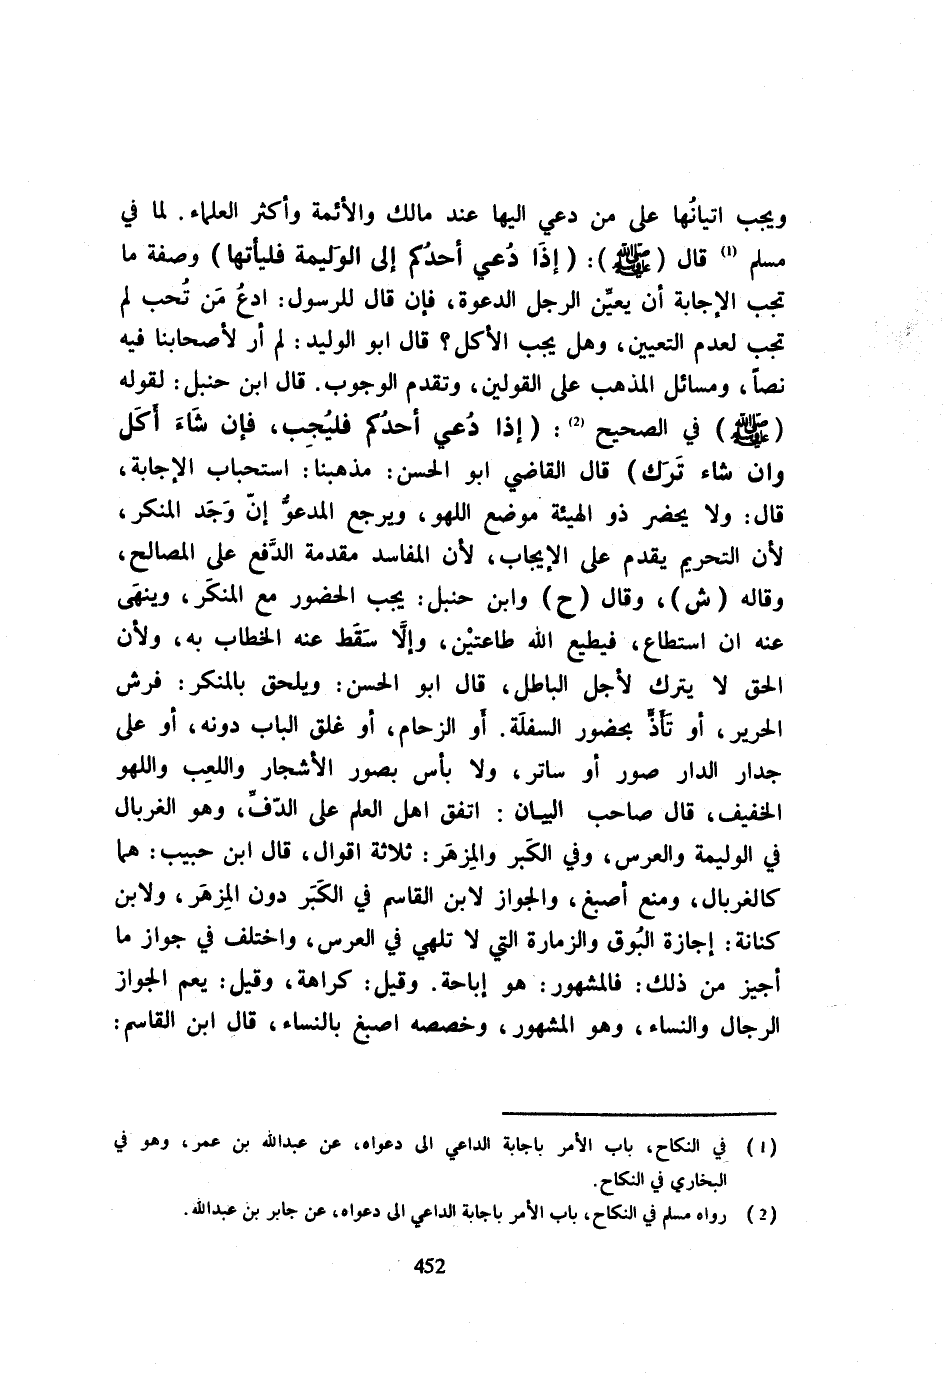 ويجب اتيانُها على من دعي اليها عند مالك والأئمة وأكثر العلماء. لما في
مسلم (1) قال (ﷺ): (إذَا دُعي أحدُكم إلى الوَليمة فليأتها) وصفة ما
تجب الإجابة أن يعيِّن الرجل الدعوة، فإن قال للرسول: ادعُ مَن تُحب لم
تجب لعدم التعيين، وهل يجب الأكل؟ قال ابو الوليد: لم أر لأصحابنا فيه
نصاً، ومسائل المذهب على القولين، وتقدم الوجوب. قال ابن حنبل: لقوله
(ﷺ) في الصحيح (2): (إذا دُعي أحدُكم فليُجِب، فإن شَاءَ أَكَل
وان شاء تَرَك) قال القاضي ابو الحسن: مذهبنا: استحباب الإجابة،
قال: ولا يحضر ذو الهيئة موضع اللهو، ويرجع المدعوُّ إنّ وَجَد المنكر،
لأن التحريم يقدم على الإيجاب، لأن المفاسد مقدمة الدَّفع على المصالح،
وقاله (ش)، وقال (ح) وابن حنبل: يجب الحضور مع المنكَر، وينهَى
عنه ان استطاع، فيطيع الله طاعتيْن، وإلَّا سَقَط عنه الخطاب به، ولأن
الحق لا يترك لأجل الباطل، قال ابو الحسن: ويلحق بالمنكر: فرش
الحرير، أو تَأَذٍّ بحضور السفلَة. أَو الزحام، أو غلق الباب دونه، أو على
جدار الدار صور أو ساتر، ولا بأس بصور الأشجار واللعِب واللهو
الخفيف، قال صاحب البيان: اتفق اهل العلم على الدّفِّ، وهو الغربال
في الوليمة والعرس، وفي الكَبر والمِزهَر: ثلاثة اقوال، قال ابن حبيب: هما
كالغربال، ومنع أصبغ، والجواز لابن القاسم في الكَبَر دون المِزهَر، ولابن
كنانة: إجازة البُوق والزمارة التي لا تلهي في العرس، واختلف في جواز ما
أجيز من ذلك: فالمشهور: هو إباحة. وقيل: كراهة، وقيل: يعم الجواز
الرجال والنساء، وهو المشهور، وخصصه اصبغ بالنساء، قال ابن القاسم:
(1) في النكاح، باب الأمر باجابة الداعي الى دعواه، عن عبدالله بن عمر، وهو في
البخاري في النكاح.
(2) رواه مسلم في النكاح، باب الأمر باجابة الداعي الى دعواه، عن جابر بن عبدالله.
452